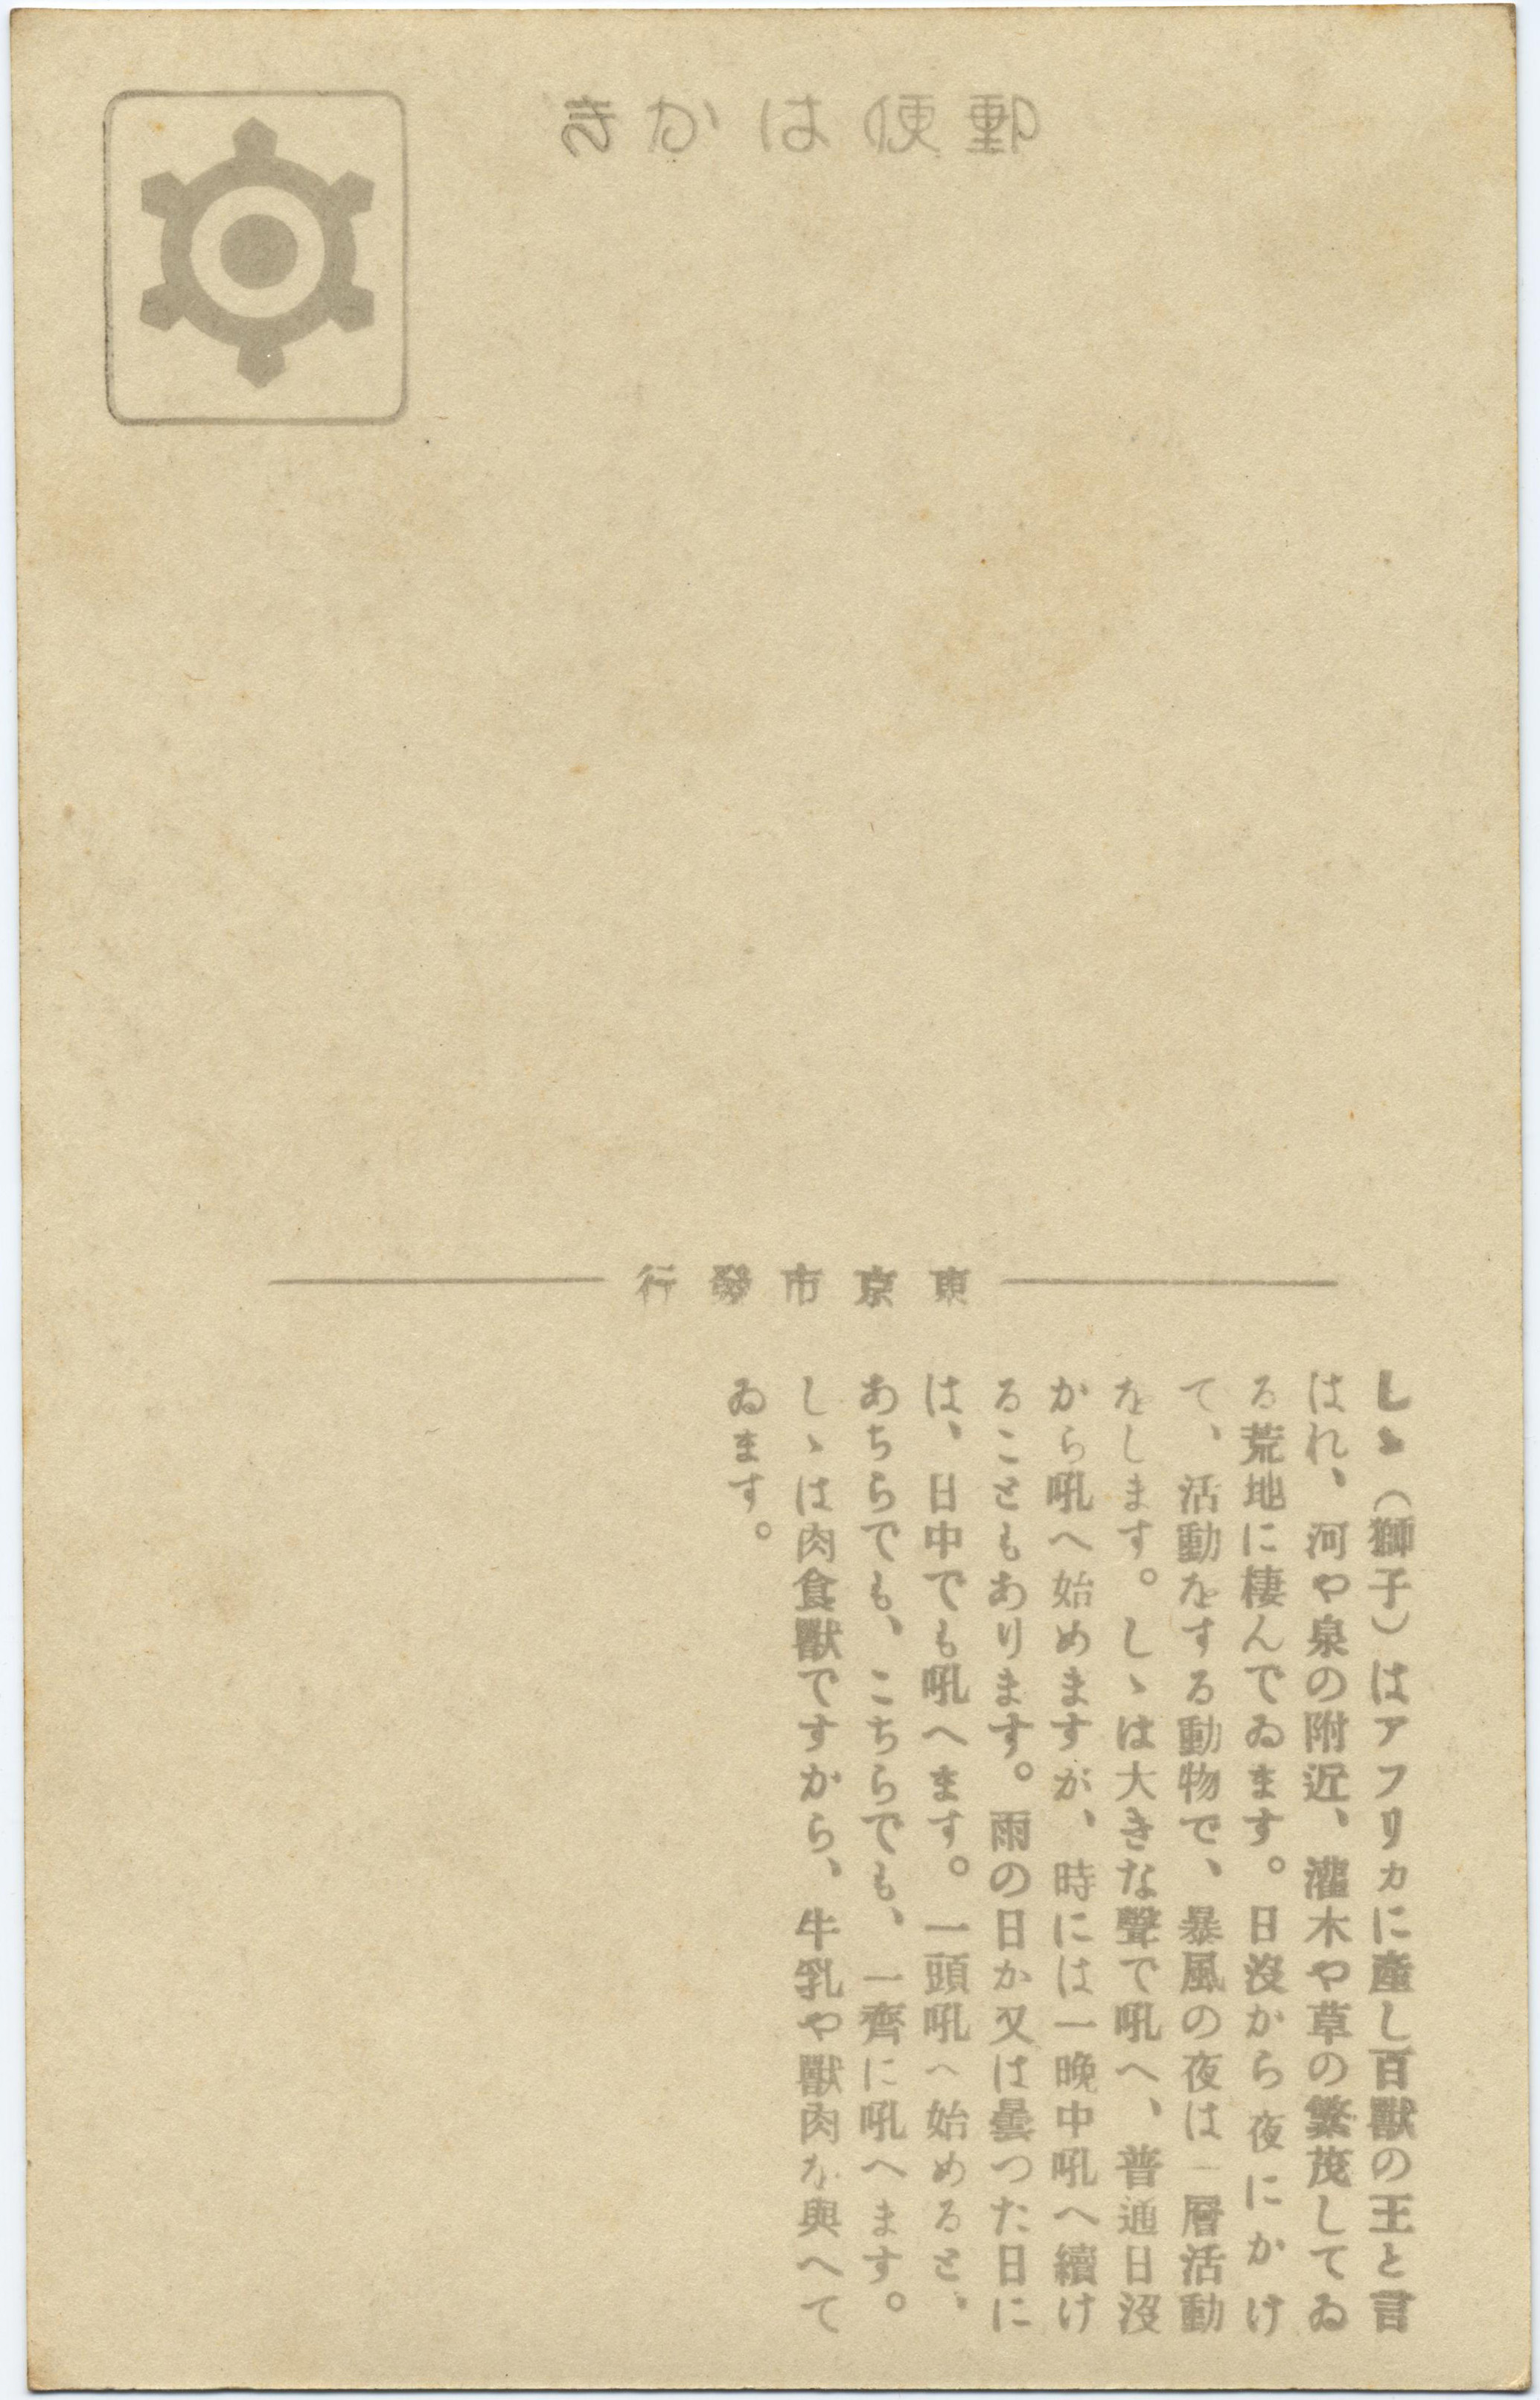 郵便はかき
東京市發行
しゝ（獅子）はアフリカに産し百獸の王と言
はれ、河や泉の附近、灌木や草の繁茂してゐ
る荒地に棲んでゐます。日沒から夜にかけ
て、活動をする動物で、暴風の夜は一層活動
をします。しゝは大きな聲で吼へ、普通日沒
から吼へ始めますが、時には一晩中吼へ續け
ることもあります。雨の日か又は曇つた日に
は、日中でも吼へます。一頭吼へ始めると、
あちらでも、こちらでも、一齊に吼へます。
しゝは肉食獸ですから、牛乳や獸肉を與へて
ゐます。